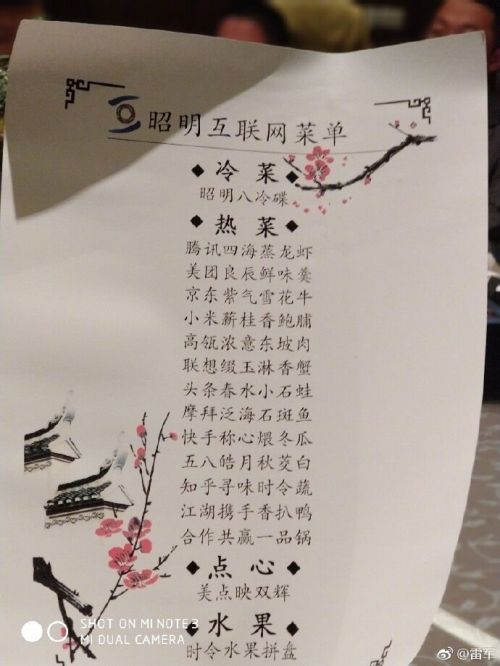 昭明互联网菜单
◆ 冷菜 ◆
昭明八冷碟
◆ 热菜 ◆
腾讯四海蒸龙虾
美团良辰鲜味羹
京东紫气雪花牛
小米薪桂香鲍脯
高瓴浓意东坡肉
联想缀玉淋香蟹
头条春水小石蛙
摩拜泛海石斑鱼
快手称心煨冬瓜
五八皓月秋茭白
知乎寻味时令蔬
江湖携手香扒鸭
合作共赢一品锅
◆ 点心 ◆
美点映双辉
◆ 水果 ◆
时令水果拼盘
SHOT ON MI NOTE 3
MI DUAL CAMERA
@雷军